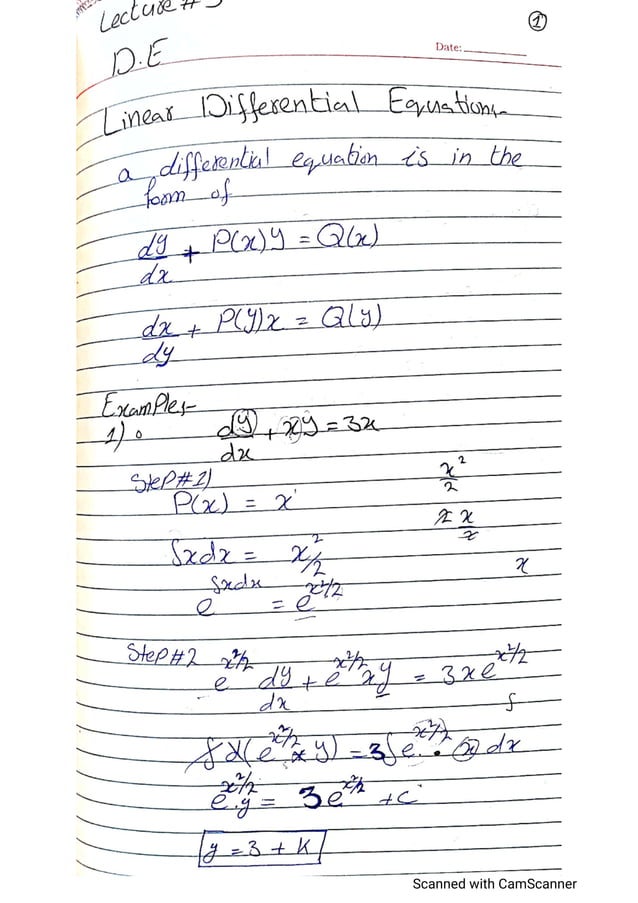 Lecture #
①
D.E
Date:
Linear Differential Equation:-
a differential equation is in the
form of
dy/dx + P(x)y = Q(x)
dx/dy + P(y)x = Q(y)
Examples:-
1) dy/dx + xy = 3x
Step#1)
P(x) = x
x²/2
2x/2
∫xdx = x²/2
x
e^∫xdx = e^x²/2
Step#2 e^x²/2 dy/dx + e^x²/2 xy = 3xe^x²/2
∫
∫d(e^x²/2 × y) = 3∫e^x²/2 · x dx
e^x²/2 · y = 3e^x²/2 + c
y = 3 + K
Scanned with CamScanner